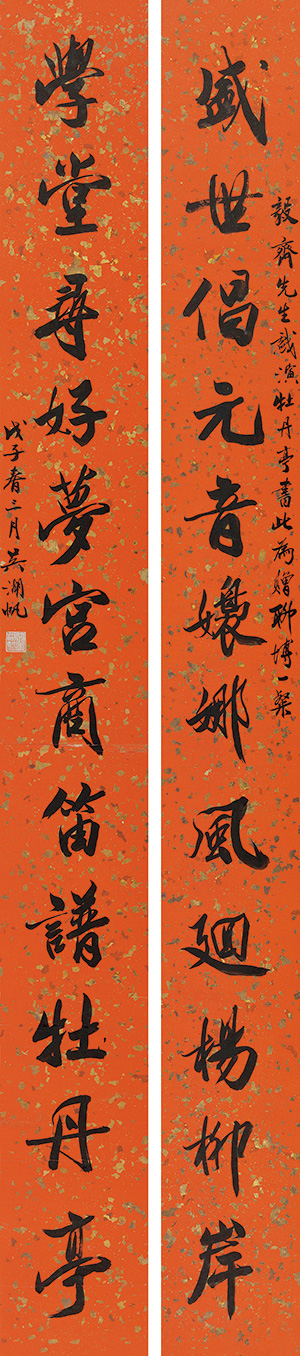 毅齋先生試演牡丹亭書此為贈聊博一粲
盛世倡元音嬝娜風迴楊柳岸
學堂尋好夢宮商笛譜牡丹亭
戊子春三月吳湖帆